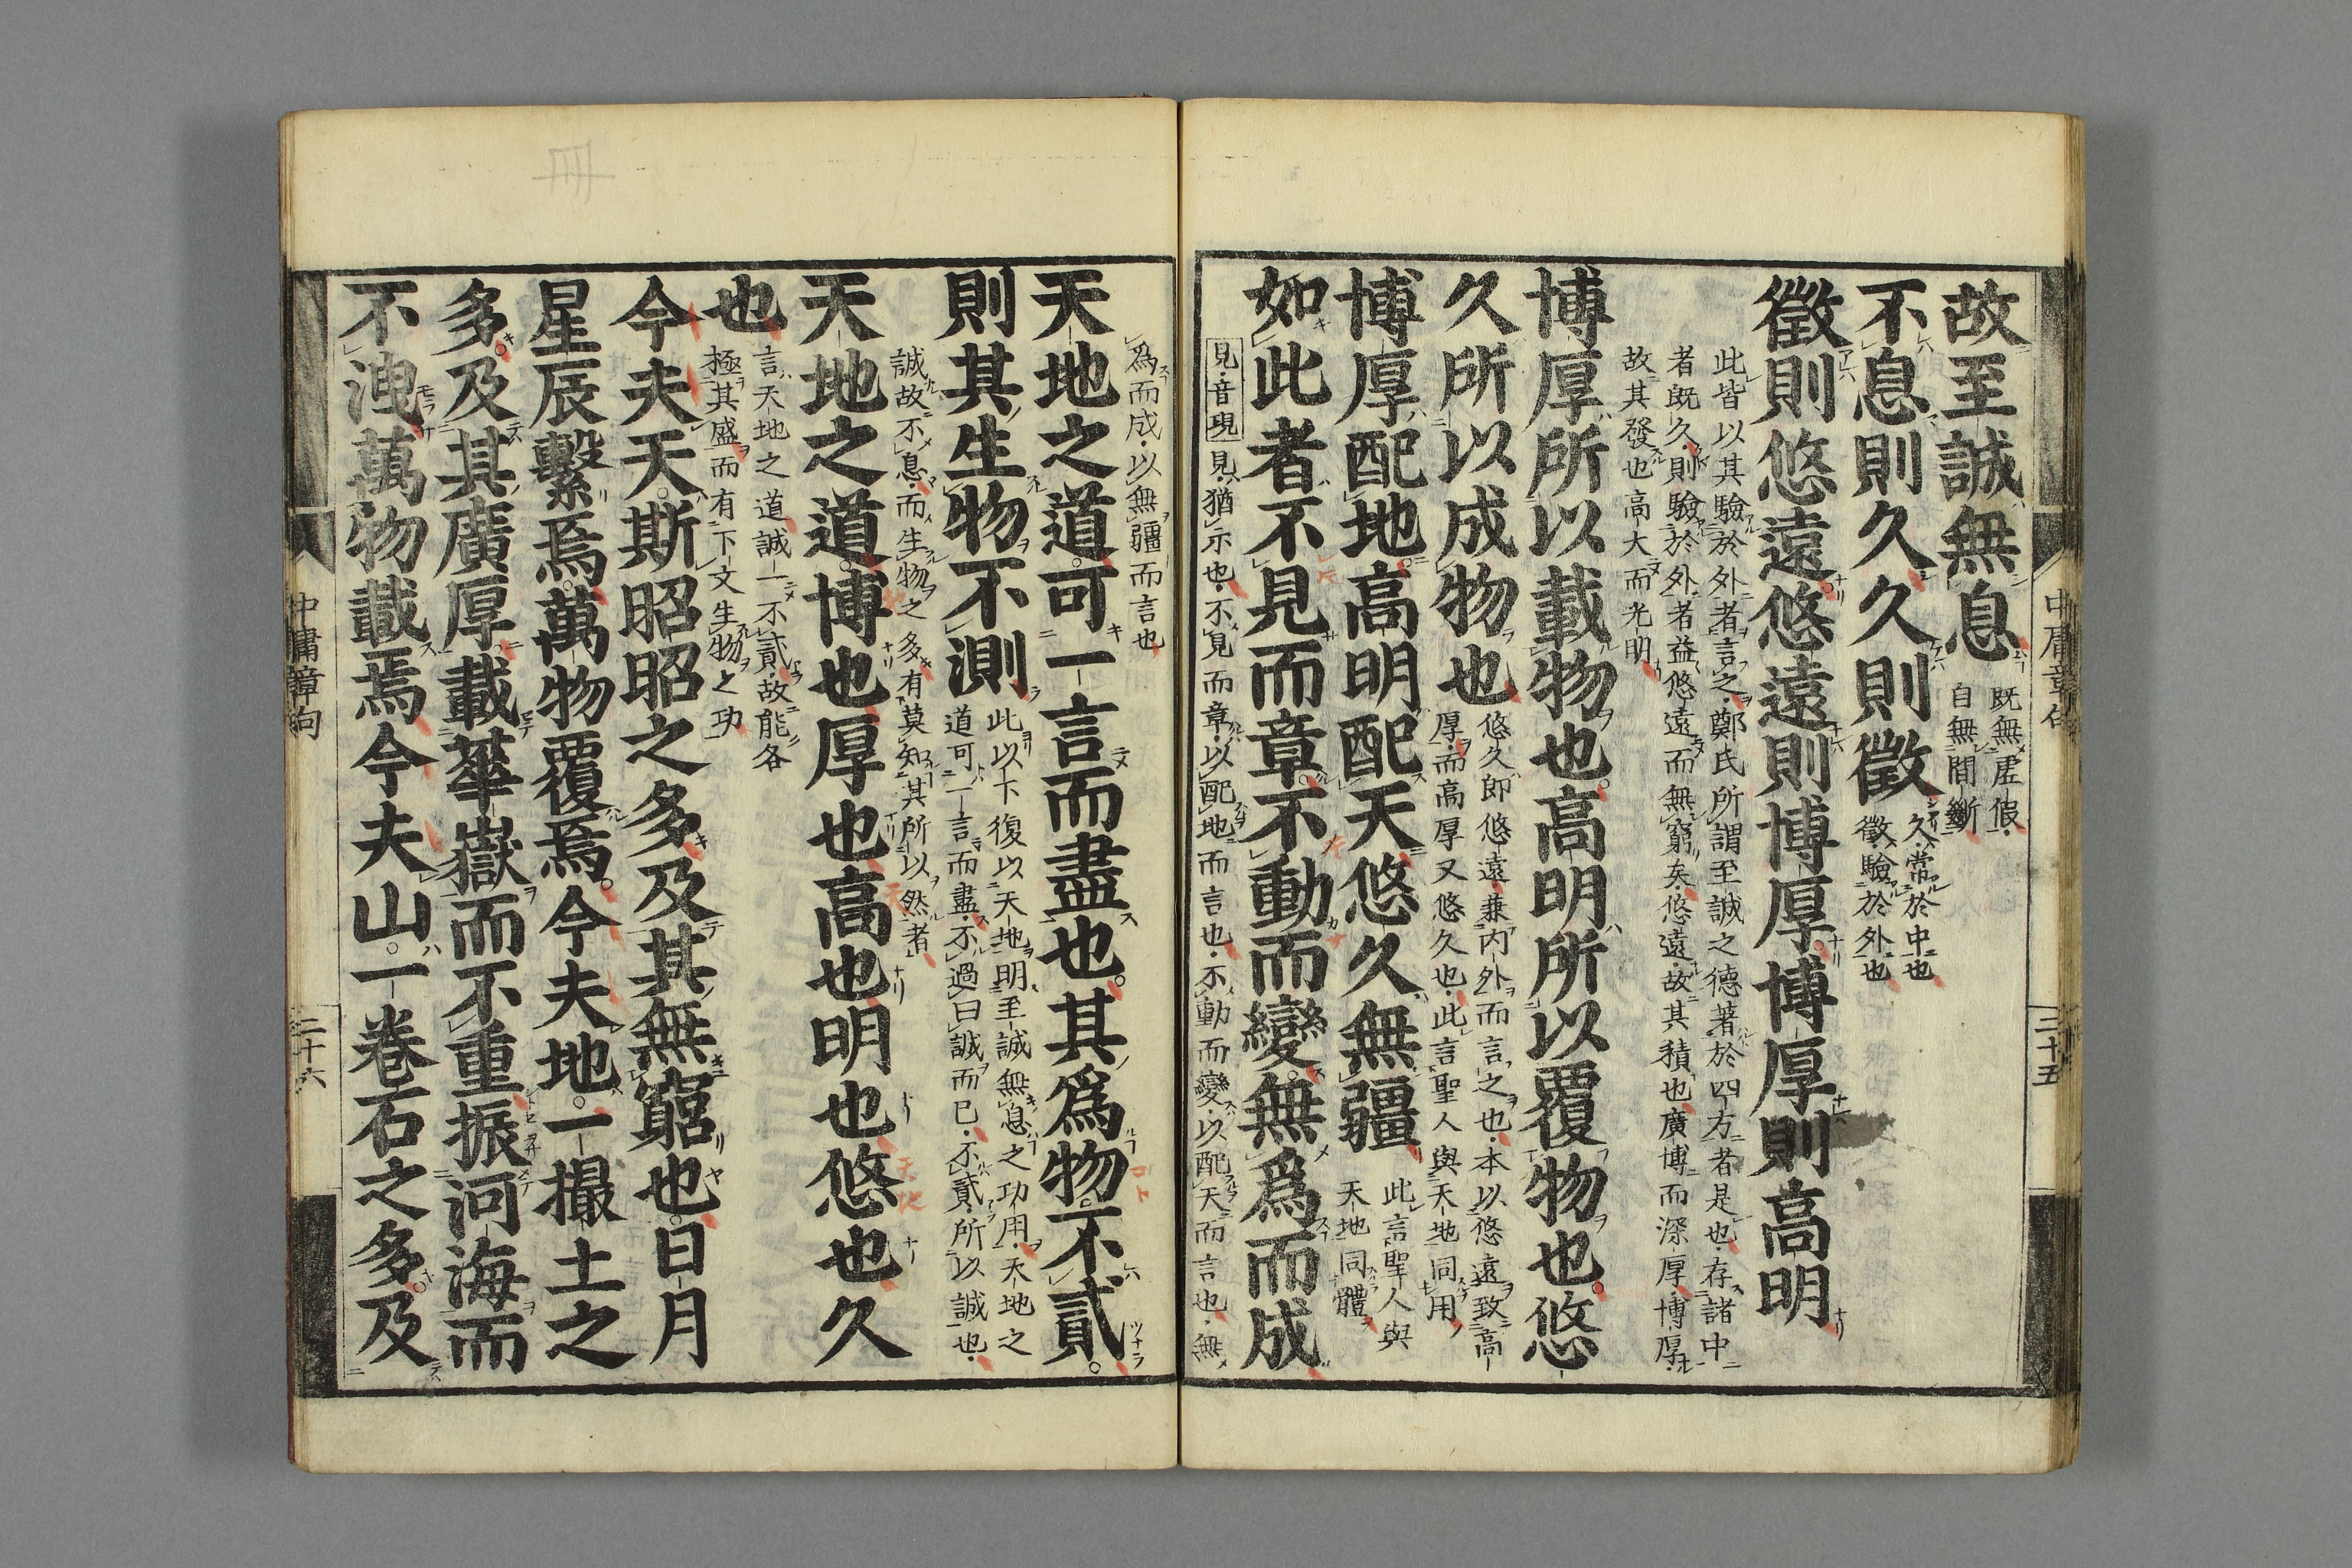 故至誠無息
既無虛假
自無間斷
不息則久久則徵
久常於中也
徵驗於外也
徵則悠遠悠遠則博厚博厚則高明
此皆以其驗於外者言之鄭氏所謂至誠之德著於四方者是也存諸中
者既久則驗於外者益悠遠而無窮矣悠遠故其積也廣博而深厚博厚
故其發也高大而光明
博厚所以載物也高明所以覆物也悠
久所以成物也
悠久即悠遠兼內外而言之也本以悠遠致高
厚而高厚又悠久也此言聖人與天地同用
博厚配地高明配天悠久無疆
此言聖人與
天地同體
如此者不見而章不動而變無爲而成
見音現見猶示也不見而章以配地而言也不動而變以配天而言也無
為而成以無疆而言也
天地之道可一言而盡也其爲物不貳
則其生物不測
此以下復以天地明至誠無息之功用天地之
道可一言而盡不過曰誠而已不貳所以誠也
誠故不息而生物之多有莫知其所以然者
天地之道博也厚也高也明也悠也久
也
言天地之道誠一不貳故能各
極其盛而有下文生物之功
今夫天斯昭昭之多及其無窮也日月
星辰繫焉萬物覆焉今夫地一撮土之
多及其廣厚載華嶽而不重振河海而
不洩萬物載焉今夫山一卷石之多及
中庸章句
二十五
中庸章句
二十六